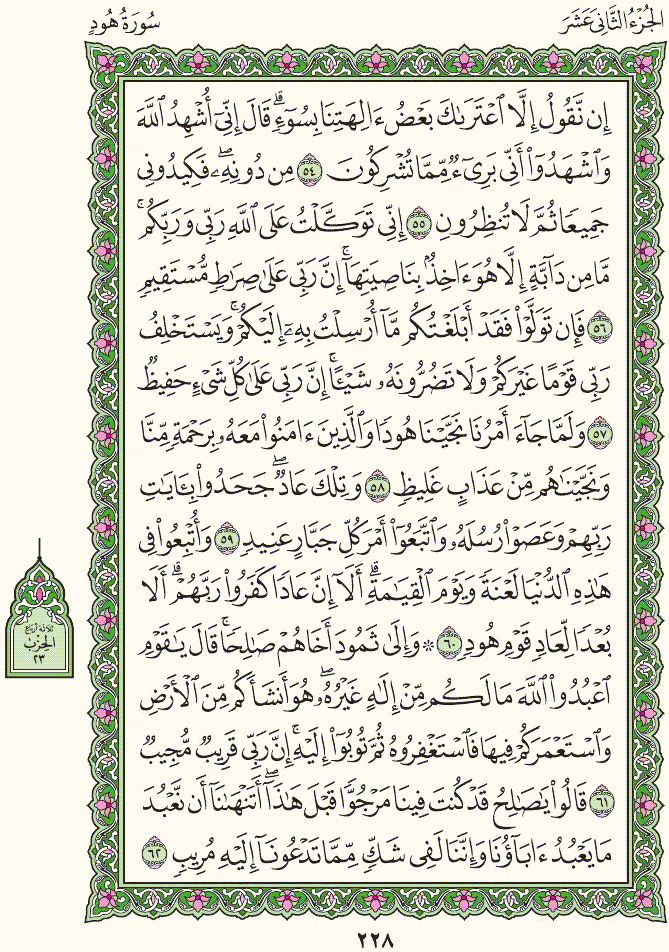 الجُزْءُ الثَّانِيَ عَشَرَ
سُورَةُ هُودٍ
إِن نَّقُولُ إِلَّا ٱعْتَرَىٰكَ بَعْضُ ءَالِهَتِنَا بِسُوٓءٍۗ قَالَ إِنِّيٓ أُشْهِدُ ٱللَّهَ
وَٱشْهَدُوٓاْ أَنِّي بَرِيٓءٌ مِّمَّا تُشْرِكُونَ ٥٤ مِن دُونِهِۦۖ فَكِيدُونِي
جَمِيعًا ثُمَّ لَا تُنظِرُونِ ٥٥ إِنِّي تَوَكَّلْتُ عَلَى ٱللَّهِ رَبِّي وَرَبِّكُمۚ
مَّا مِن دَآبَّةٍ إِلَّا هُوَ ءَاخِذُۢ بِنَاصِيَتِهَآۚ إِنَّ رَبِّي عَلَىٰ صِرَٰطٍ مُّسْتَقِيمٍ
٥٦ فَإِن تَوَلَّوْاْ فَقَدْ أَبْلَغْتُكُم مَّآ أُرْسِلْتُ بِهِۦٓ إِلَيْكُمْۚ وَيَسْتَخْلِفُ
رَبِّي قَوْمًا غَيْرَكُمْ وَلَا تَضُرُّونَهُۥ شَيْـًٔاۚ إِنَّ رَبِّي عَلَىٰ كُلِّ شَيْءٍ حَفِيظٌ
٥٧ وَلَمَّا جَآءَ أَمْرُنَا نَجَّيْنَا هُودًا وَٱلَّذِينَ ءَامَنُواْ مَعَهُۥ بِرَحْمَةٍ مِّنَّا
وَنَجَّيْنَٰهُم مِّنْ عَذَابٍ غَلِيظٍ ٥٨ وَتِلْكَ عَادٌۖ جَحَدُواْ بِـَٔايَٰتِ
رَبِّهِمْ وَعَصَوْاْ رُسُلَهُۥ وَٱتَّبَعُوٓاْ أَمْرَ كُلِّ جَبَّارٍ عَنِيدٍ ٥٩ وَأُتْبِعُواْ فِي
هَٰذِهِ ٱلدُّنْيَا لَعْنَةً وَيَوْمَ ٱلْقِيَٰمَةِۗ أَلَآ إِنَّ عَادًا كَفَرُواْ رَبَّهُمْۗ أَلَا
بُعْدًا لِّعَادٍ قَوْمِ هُودٍ ٦٠ ۞ وَإِلَىٰ ثَمُودَ أَخَاهُمْ صَٰلِحًاۚ قَالَ يَٰقَوْمِ
ٱعْبُدُواْ ٱللَّهَ مَا لَكُم مِّنْ إِلَٰهٍ غَيْرُهُۥۖ هُوَ أَنشَأَكُم مِّنَ ٱلْأَرْضِ
وَٱسْتَعْمَرَكُمْ فِيهَا فَٱسْتَغْفِرُوهُ ثُمَّ تُوبُوٓاْ إِلَيْهِۚ إِنَّ رَبِّي قَرِيبٌ مُّجِيبٌ
٦١ قَالُواْ يَٰصَٰلِحُ قَدْ كُنتَ فِينَا مَرْجُوًّا قَبْلَ هَٰذَآۖ أَتَنْهَىٰنَآ أَن نَّعْبُدَ
مَا يَعْبُدُ ءَابَآؤُنَا وَإِنَّنَا لَفِي شَكٍّ مِّمَّا تَدْعُونَآ إِلَيْهِ مُرِيبٍ ٦٢
ثلاثة أرباع
الحزب
٢٣
٢٢٨